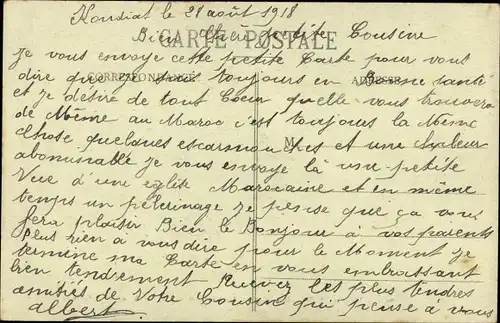 Koudiat le 28 août 1918
Bien chère petite Cousine
CARTE POSTALE
Je vous envoye cette petite Carte pour vous
dire que je suis toujours en Bonne santé
CORRESPONDANCE ADRESSE
et je désire de tout Coeur quelle vous trouvera
de Même au Maroc c'est toujours la Même
Chose quelques escarmouches et une chaleur
M
abominable Je vous envoye là une petite
Vue d'une eglise Marocaine et en même
temps un pelerinage Je pense que ça vous
fera plaisir Bien le Bonjour à vos parents
plus rien a vous dire pour le Moment Je
termine ma Carte en vous embrassant
bien tendrement Recevez les plus tendres
amitiés de Votre Cousin qui pense à vous
Albert